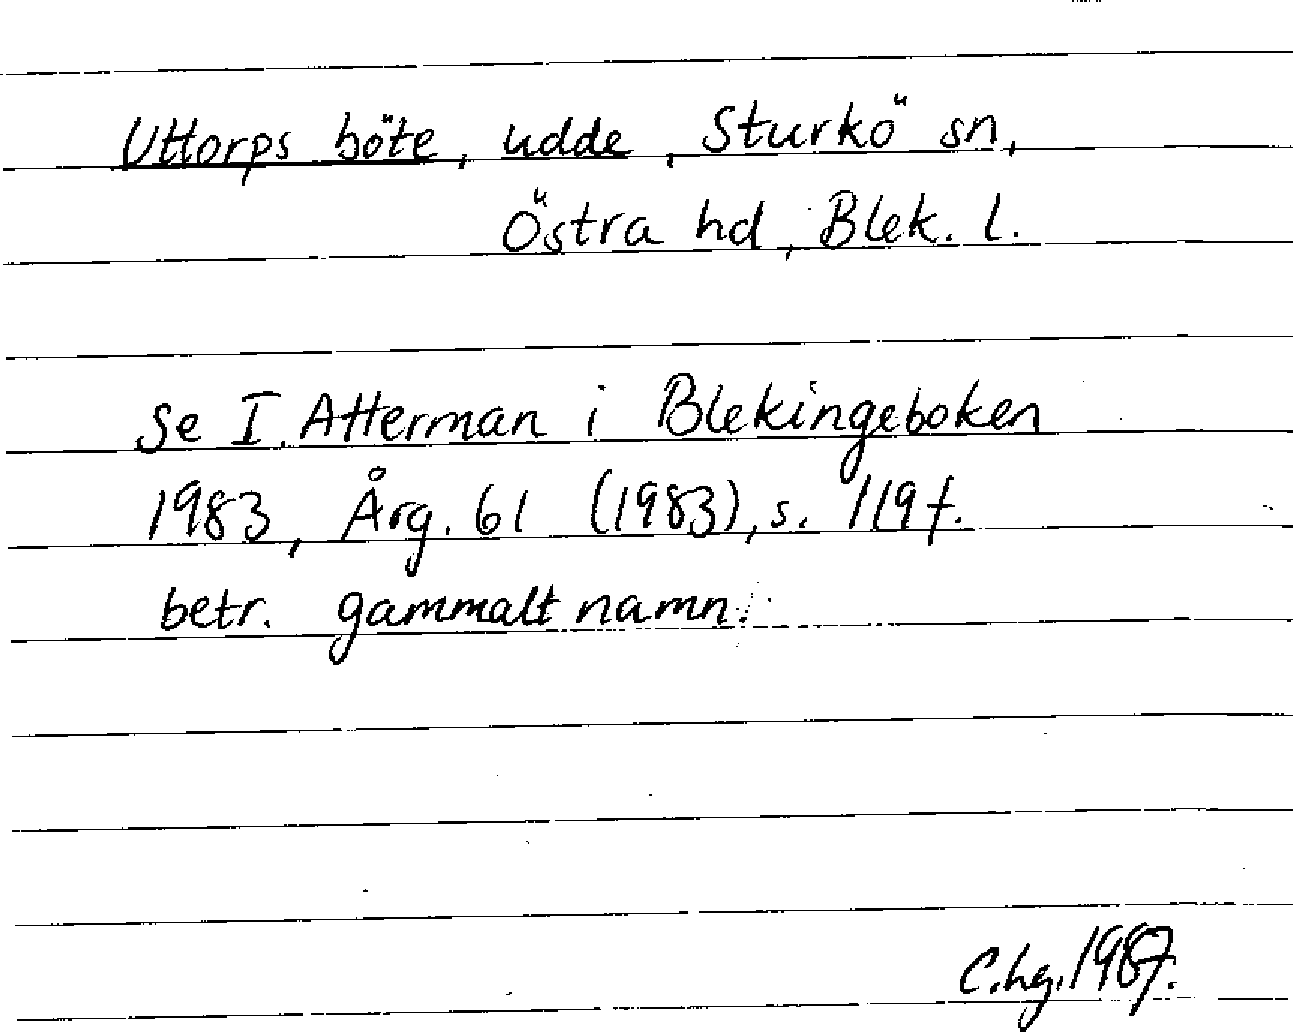 Uttorps böte, udde, Sturkö sn,
Östra hd, Blek. l.
Se I. Atterman i Blekingeboken
1983, Årg. 61 (1983), s. 119 f.
betr. gammalt namn.
C.hg. 1987.